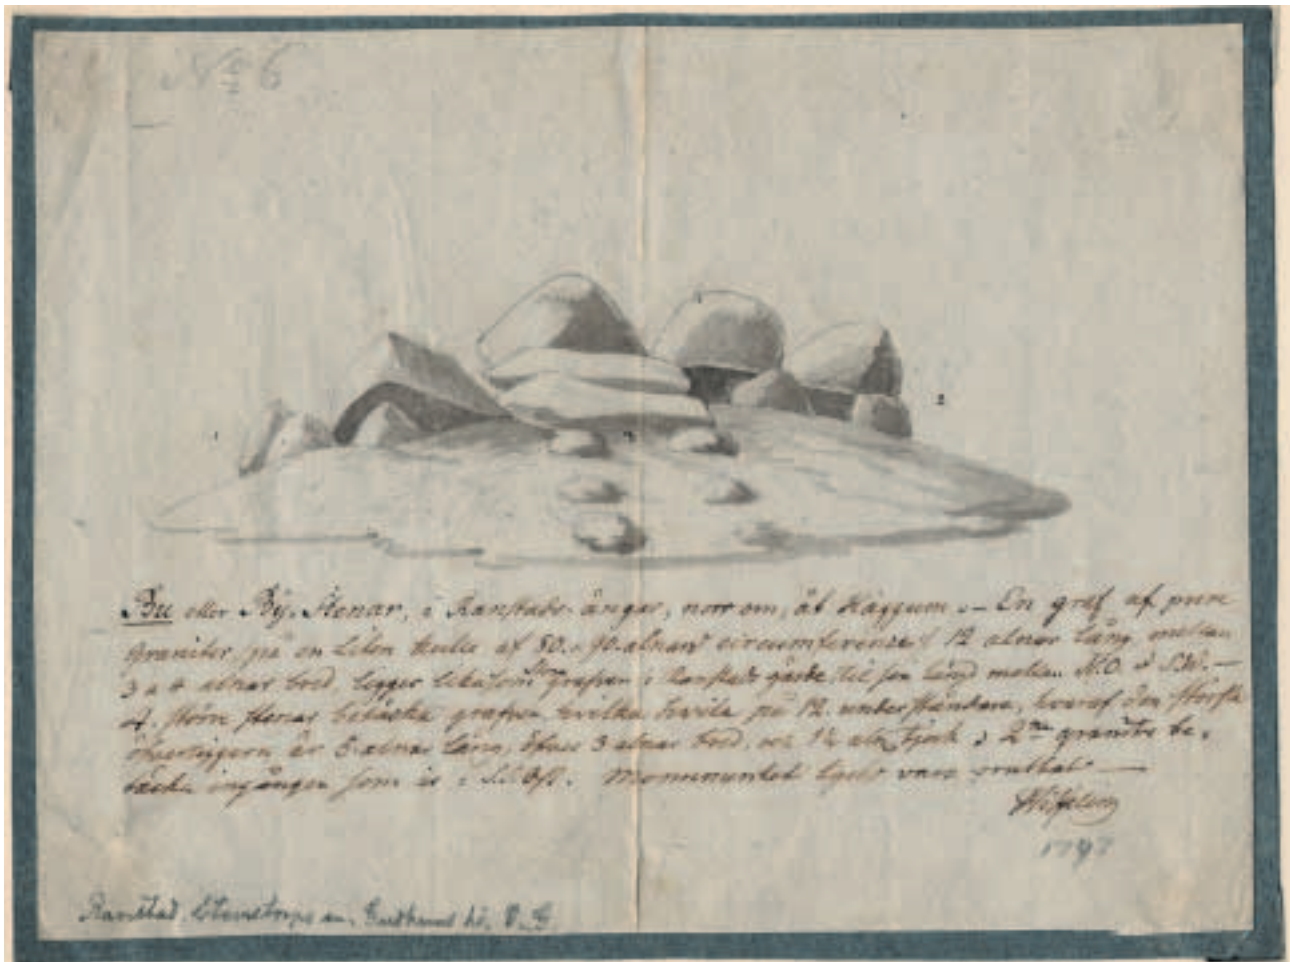 No 6
1
1
2
3
Bu eller Bÿ-Stenar, i Ranstads änger, norr om, åt Häggum. – En graf af pura
graniter, på en liten kulle af 80 a 90 alnars circumference. 12 alnar lång mellan
3 a 4 alnar bred, ligger likasom grafven i Ranstads gärde, til sin längd mellan N.O. & S.W. –
4 större stenar betäcka grafven hvilka hvila på 12 understöndare, hvaraf den största
är 5 alnar lång, 3 alnar bred, och 1½ aln tjock; 2ne graniter be-
täcka ingången som är i Ost. Monumentet tycks vara orubbat —
1797
Ranstad, Stenstorps sn, Gudhems hd. V. G.